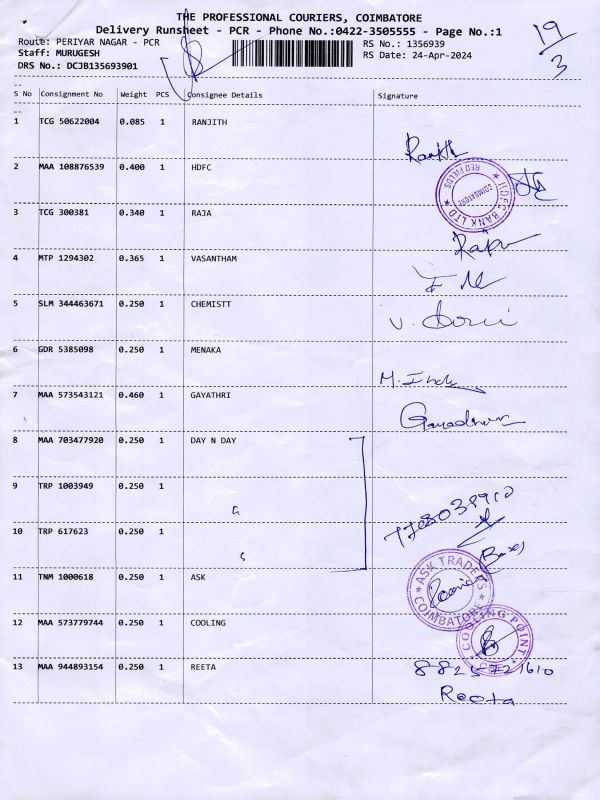 THE PROFESSIONAL COURIERS, COIMBATORE
Delivery Runsheet - PCR - Phone No.:0422-3505555 - Page No.:1
Route: PERIYAR NAGAR - PCR
RS No.: 1356939
Staff: MURUGESH
RS Date: 24-Apr-2024
DRS No.: DCJB135693901
19/3
S No Consignment No Weight PCS Consignee Details Signature
1 TCG 50622004 0.085 1 RANJITH
2 MAA 108876539 0.400 1 HDFC
HDFC BANK LTD RED FIELDS COIMBATORE
3 TCG 300381 0.340 1 RAJA
4 MTP 1294302 0.365 1 VASANTHAM
5 SLM 344463671 0.250 1 CHEMISTT
6 GDR 5385098 0.250 1 MENAKA
7 MAA 573543121 0.460 1 GAYATHRI
8 MAA 703477920 0.250 1 DAY N DAY
9 TRP 1003949 0.250 1
10 TRP 617623 0.250 1
11 TNM 1000618 0.250 1 ASK
ASK TRADERS COIMBATORE
12 MAA 573779744 0.250 1 COOLING
COOLING POINT
13 MAA 944893154 0.250 1 REETA
Reeta